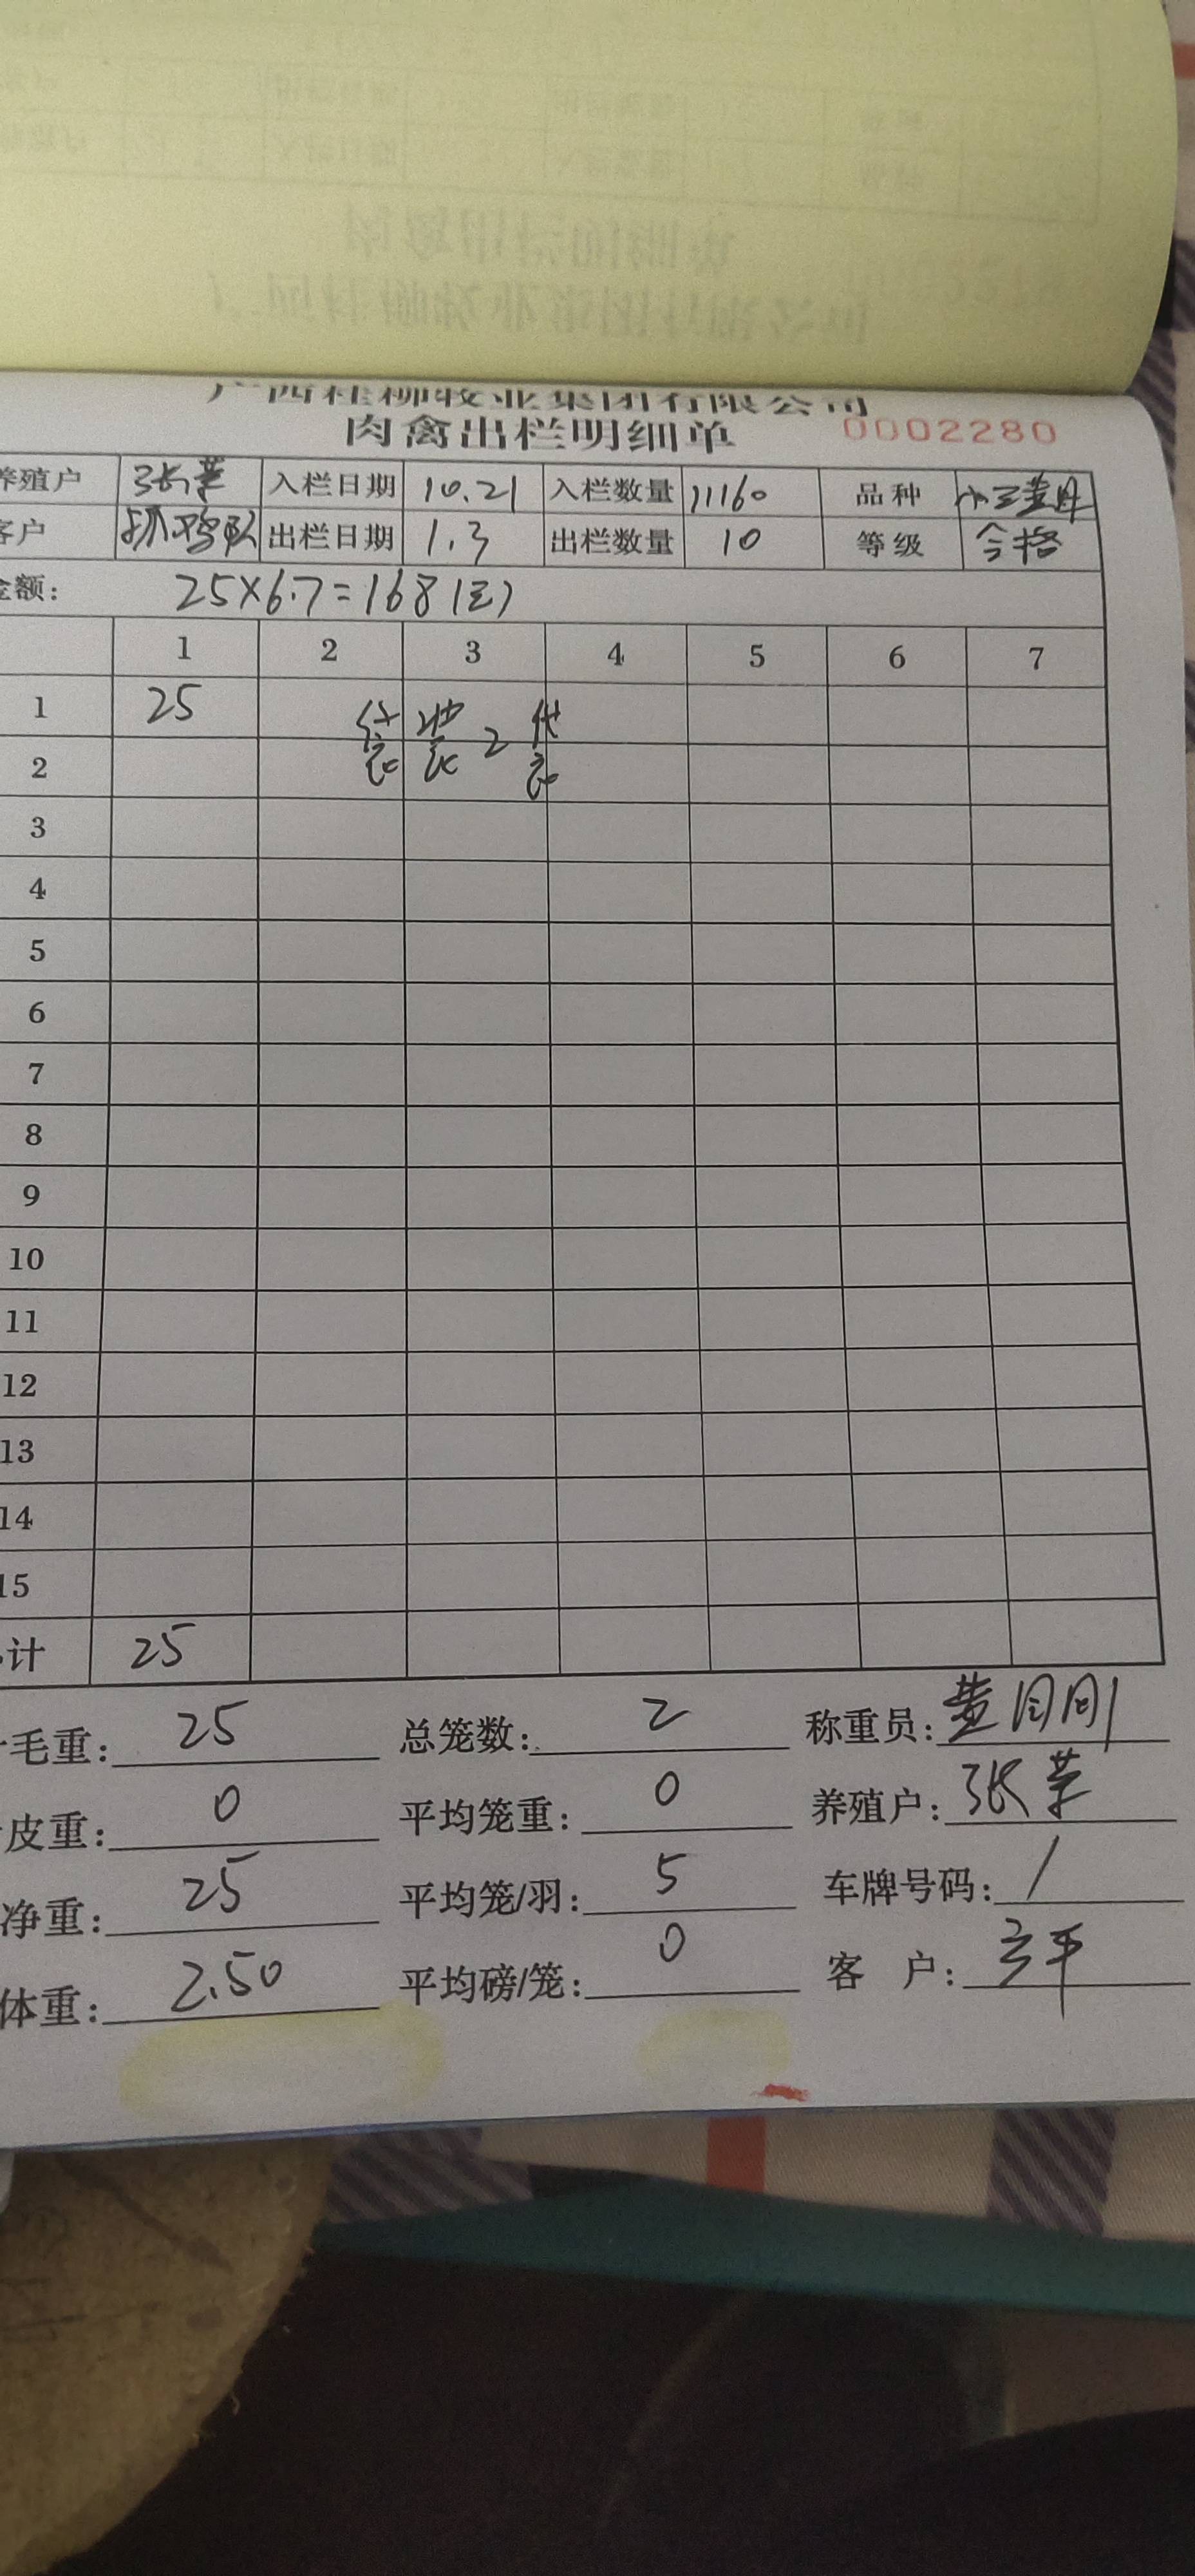 广西桂柳牧业集团有限公司
肉禽出栏明细单 0002280
养殖户 张荣 入栏日期 10.21 入栏数量 11160 品种
客户 抓鸡队 出栏日期 1.3 出栏数量 10 等级 合格
金额: 25×6.7=168(元)
1 2 3 4 5 6 7
1 25
2
3
4
5
6
7
8
9
10
11
12
13
14
15
计 25
毛重: 25 总笼数: 2 称重员: 黄
皮重: 0 平均笼重: 0 养殖户: 张荣
净重: 25 平均笼/羽: 5 车牌号码: /
体重: 2.50 平均磅/笼: 0 客 户: